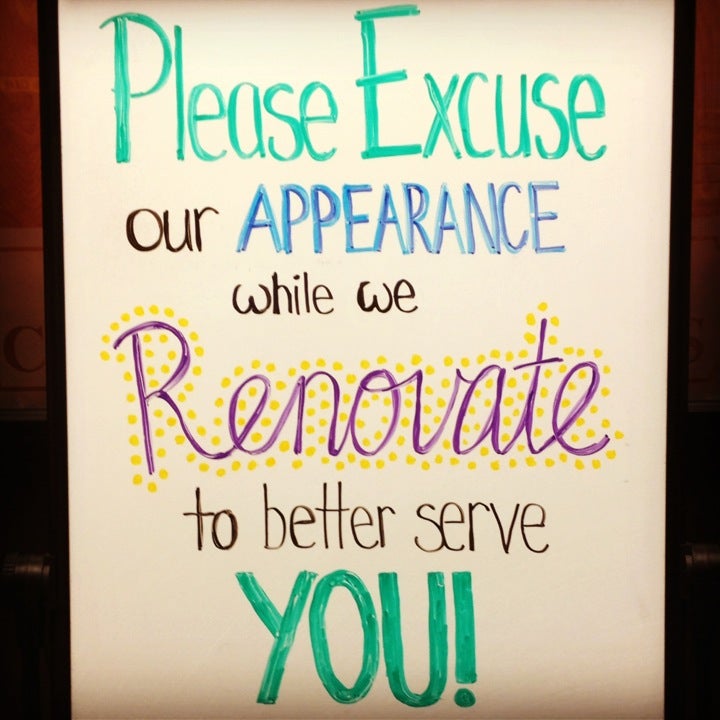 Please Excuse
our APPEARANCE
while we
Renovate
to better serve
YOU!